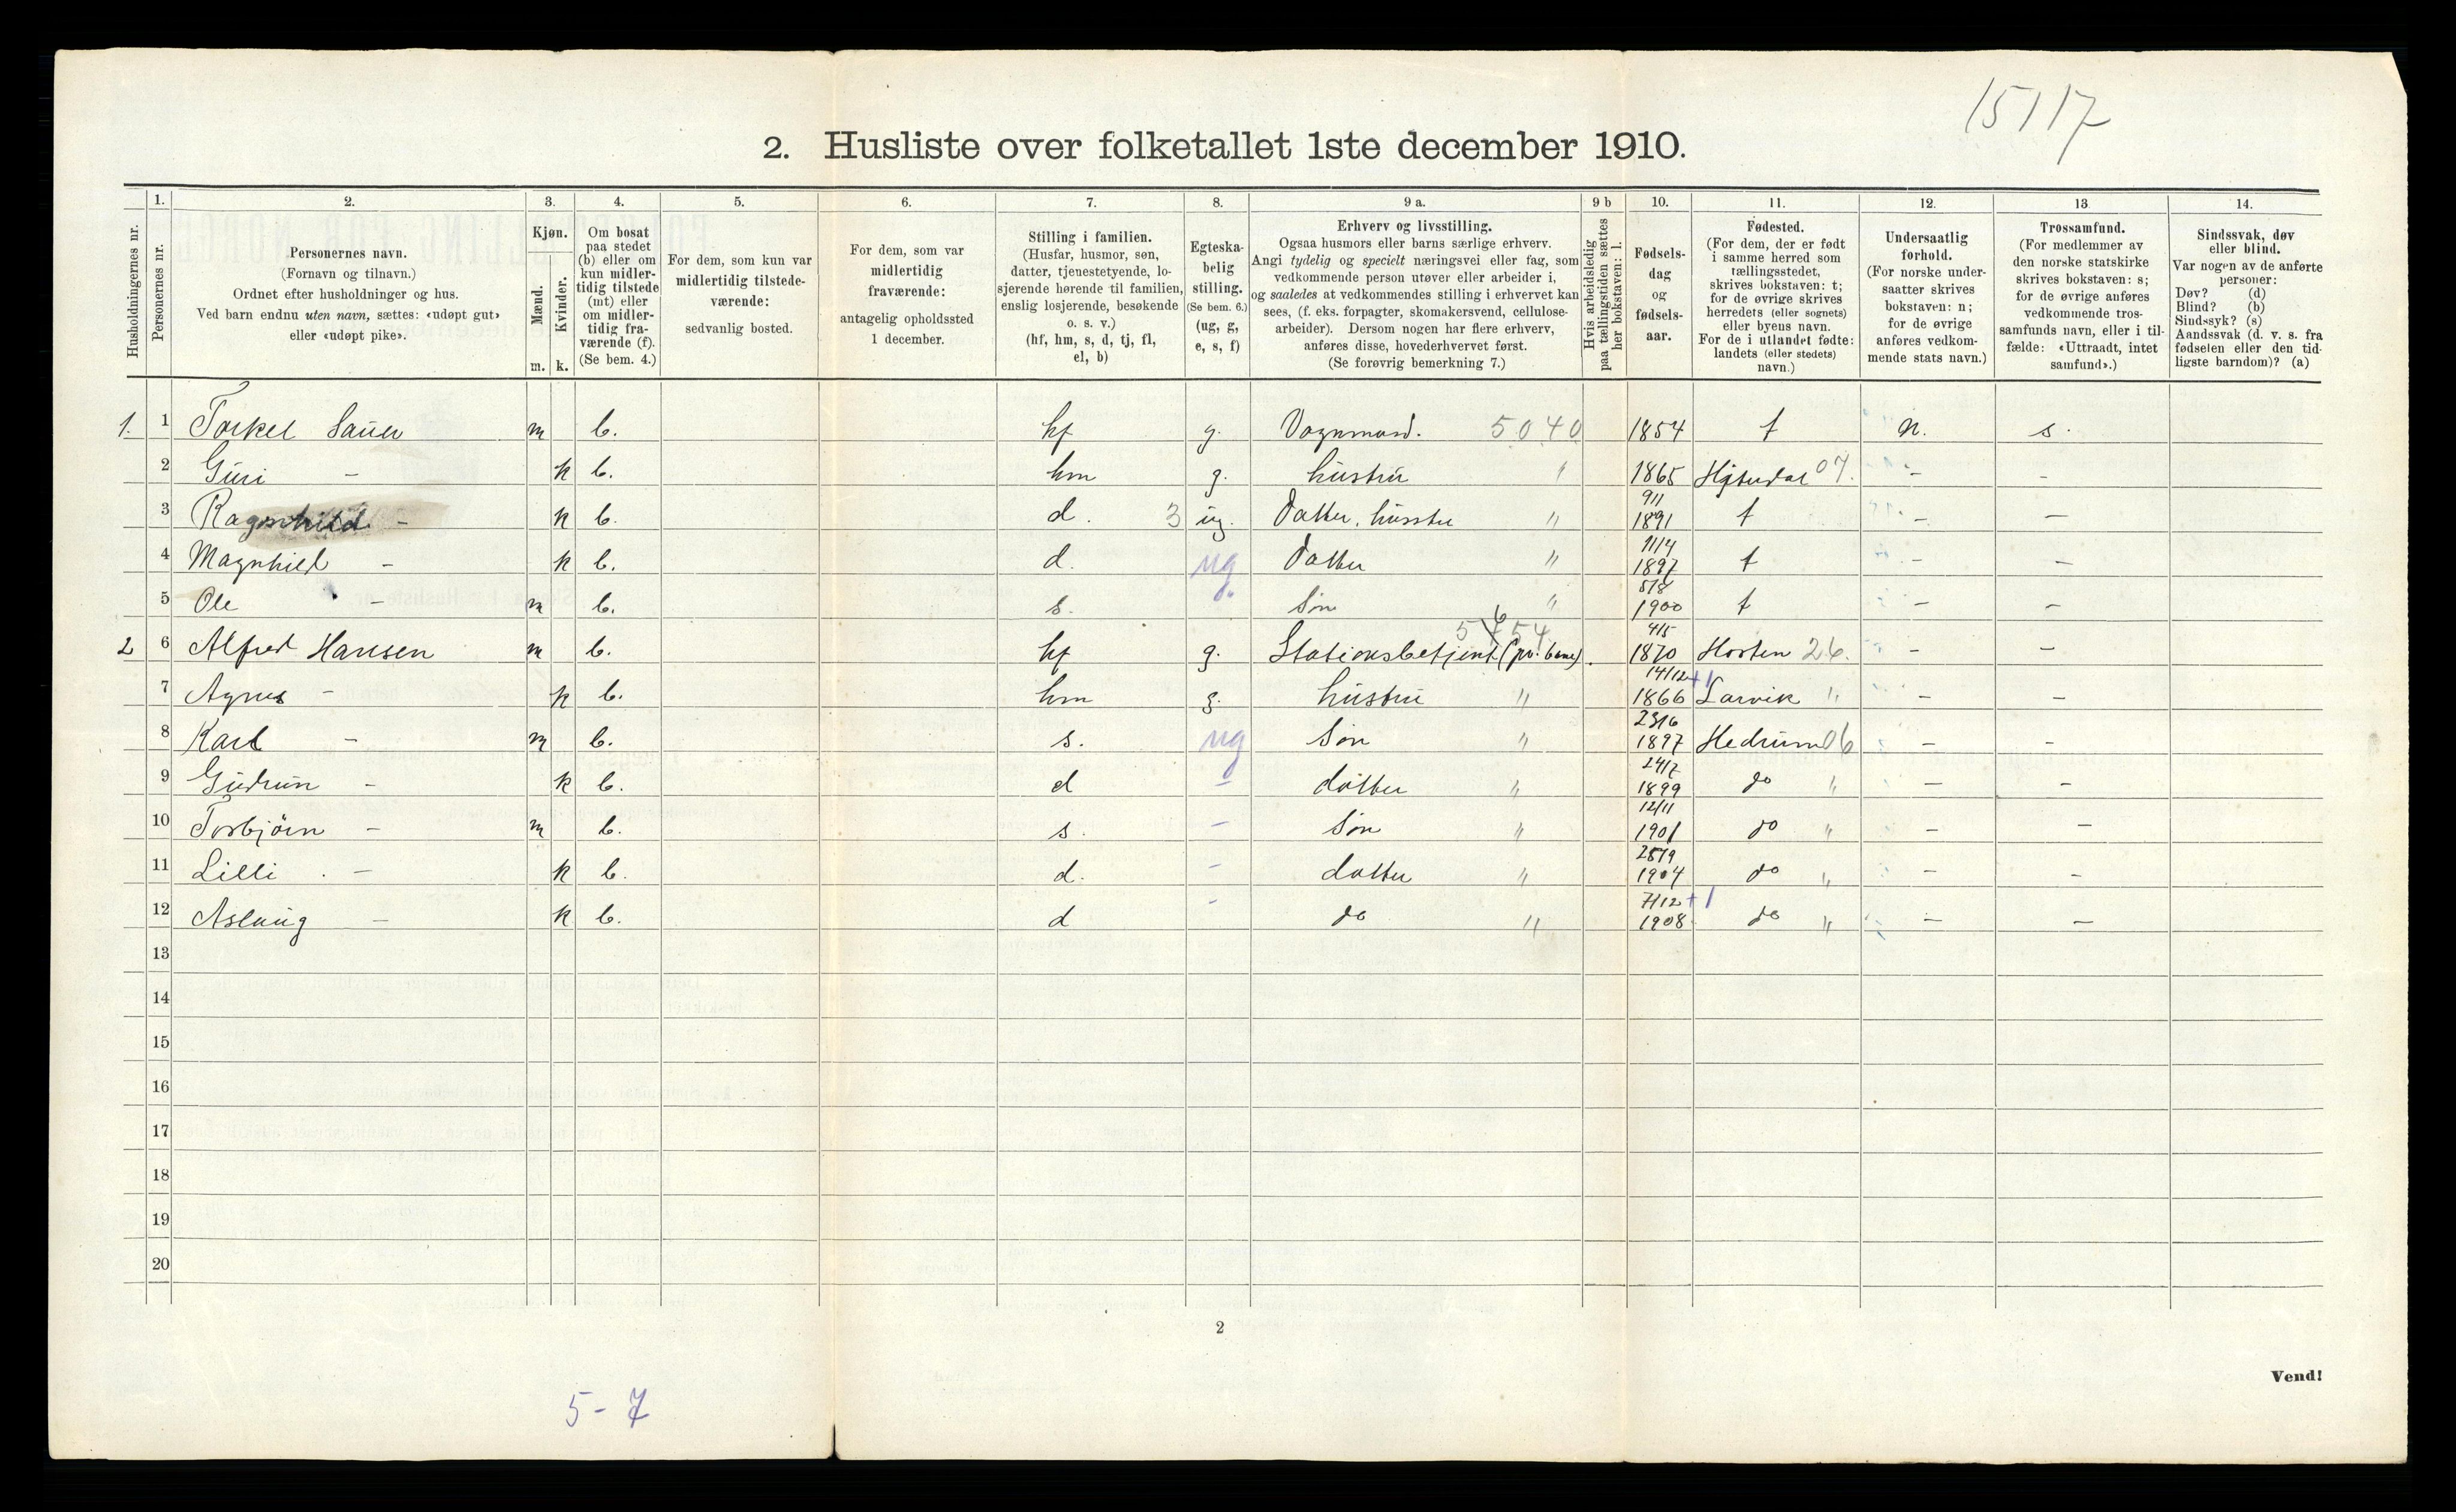 15117
2. Husliste over folketallet 1ste december 1910.
Husholdningernes nr.
1. Personernes nr.
2.
Personernes navn.
(Fornavn og tilnavn.)
Ordnet efter husholdninger og hus.
Ved barn endnu uten navn, sættes: «udøpt gut»
eller «udøpt pike».
3.
Kjøn.
Mænd. Kvinder.
m. k.
4.
Om bosat
paa stedet
(b) eller om
kun midler-
tidig tilstede
(mt) eller
om midler-
tidig fra-
værende (f).
(Se bem. 4.)
5.
For dem, som kun var
midlertidig tilstede-
værende:
sedvanlig bosted.
6.
For dem, som var
midlertidig
fraværende:
antagelig opholdssted
1 december.
7.
Stilling i familien.
(Husfar, husmor, søn,
datter, tjenestetyende, lo-
sjerende hørende til familien,
enslig losjerende, besøkende
o. s. v.)
(hf, hm, s, d, tj, fl,
el, b)
8.
Egteska-
belig
stilling.
(Se bem. 6.)
(ug, g,
e, s, f)
9 a.
Erhverv og livsstilling.
Ogsaa husmors eller barns særlige erhverv.
Angi tydelig og specielt næringsvei eller fag, som
vedkommende person utøver eller arbeider i,
og saaledes at vedkommendes stilling i erhvervet kan
sees, (f. eks. forpagter, skomakersvend, cellulose-
arbeider). Dersom nogen har flere erhverv,
anføres disse, hovederhvervet først.
(Se forøvrig bemerkning 7.)
9 b
Hvis arbeidsledig
paa tællingstiden sættes
her bokstaven: l.
10.
Fødsels-
dag
og
fødsels-
aar.
11.
Fødested.
(For dem, der er født
i samme herred som
tællingsstedet,
skrives bokstaven: t;
for de øvrige skrives
herredets (eller sognets)
eller byens navn.
For de i utlandet fødte:
landets (eller stedets)
navn.)
12.
Undersaatlig
forhold.
(For norske under-
saatter skrives
bokstaven: n;
for de øvrige
anføres vedkom-
mende stats navn.)
13
Trossamfund.
(For medlemmer av
den norske statskirke
skrives bokstaven: s;
for de øvrige anføres
vedkommende tros-
samfunds navn, eller i til-
fælde: «Uttraadt, intet
samfund».)
14.
Sindssvak, døv
eller blind.
Var nogen av de anførte
personer:
Døv? (d)
Blind? (b)
Sindssyk? (s)
Aandssvak (d. v. s. fra
fødselen eller den tid-
ligste barndom)? (a)
1. 1 Torkel Sauer m b. hf g. Vognmand. 5040 1854 t n. s.
2 Guri - k b. hm g. hustru " 1865 Hjterdal 07. - -
3 Ragnhild - k b. d. 3 ug. Datter, husstel " 9/11 1891 t - -
4 Magnhild - k b. d. ug Datter " 11/4 1897 t - -
5 Ole - m b. s. d. Søn " 5/8 1900 t - -
2 6 Alfred Hansen m b. hf g. Stationsbetjent (pr. bane). 4/5 1870 Horten 26. - -
7 Agnes - k b. hm g. hustru " 14/12 +1 1866 Larvik " - -
8 Karl - m b. s. ug Søn " 23/6 1897 Hedrum 06 - -
9 Gudrun - k b. d - datter " 24/7 1899 do " - -
10 Torbjörn - m b. s. - Søn " 12/11 1901 do " - -
11 Lilli - k b. d. - datter " 25/9 1904 do " - -
12 Aslaug - k b. d - do " 7/12 +1 1908 do " - -
13
14
15
16
17
18
19
20
2
Vend!
5-7